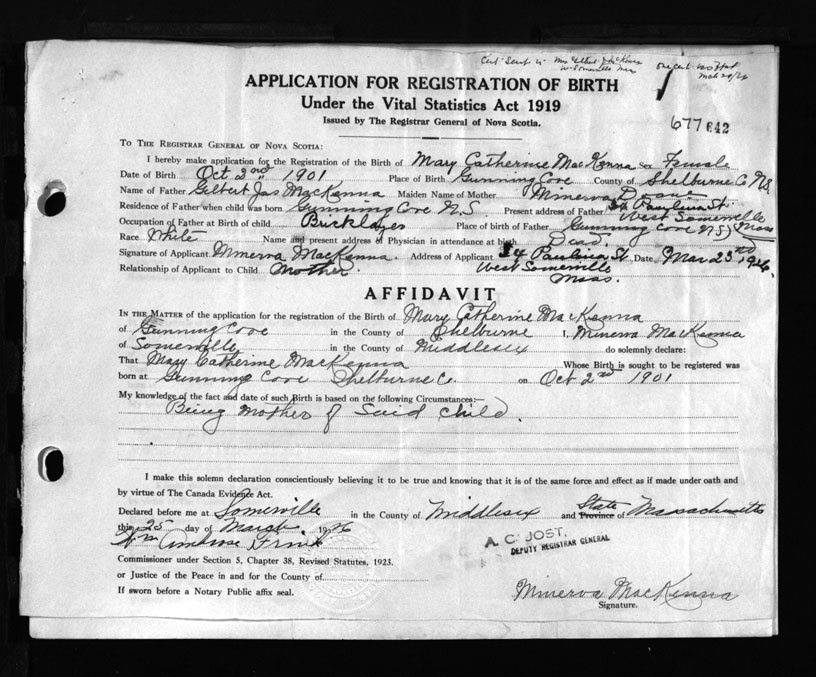 Cert Sent to Mrs Gilbert J McKenna
W. Somerville Mass
APPLICATION FOR REGISTRATION OF BIRTH
Under the Vital Statistics Act 1919
Issued by The Registrar General of Nova Scotia.
677642
TO THE REGISTRAR GENERAL OF NOVA SCOTIA:
I hereby make application for the Registration of the Birth of Mary Catherine MacKenna Sex Female
Date of Birth Oct 2nd 1901 Place of Birth Gunning Cove County of Shelburne Co N.S.
Name of Father Gilbert Jas MacKenna Maiden Name of Mother Minerva
Residence of Father when child was born Gunning Cove N.S. Present address of Father 34 Paulina St. West Somerville Mass
Occupation of Father at Birth of child Bricklayer Place of birth of Father Gunning Cove N.S.
Race White Name and present address of Physician in attendance at birth Dead.
Signature of Applicant Minerva MacKenna. Address of Applicant 34 Paulina St. Date Mar 23rd 1926.
Relationship of Applicant to Child Mother. West Somerville
Mass.
AFFIDAVIT
IN THE MATTER of the application for the registration of the Birth of Mary Catherine MacKenna
of Gunning Cove in the County of Shelburne I, Minerva MacKenna
of Somerville in the County of Middlesex do solemnly declare:
That Mary Catherine MacKenna Whose Birth is sought to be registered was
born at Gunning Cove Shelburne Co. on Oct 2nd 1901
My knowledge of the fact and date of such Birth is based on the following Circumstances:—
Being Mother of Said Child.
I make this solemn declaration conscientiously believing it to be true and knowing that it is of the same force and effect as if made under oath and
by virtue of The Canada Evidence Act.
Declared before me at Somerville in the County of Middlesex and State Province of Massachusetts
this 25 day of March 1926
Wm Ambrose
A. C. JOST,
DEPUTY REGISTRAR GENERAL
Commissioner under Section 5, Chapter 38, Revised Statutes, 1923.
or Justice of the Peace in and for the County of
If sworn before a Notary Public affix seal.
Minerva MacKenna
Signature.